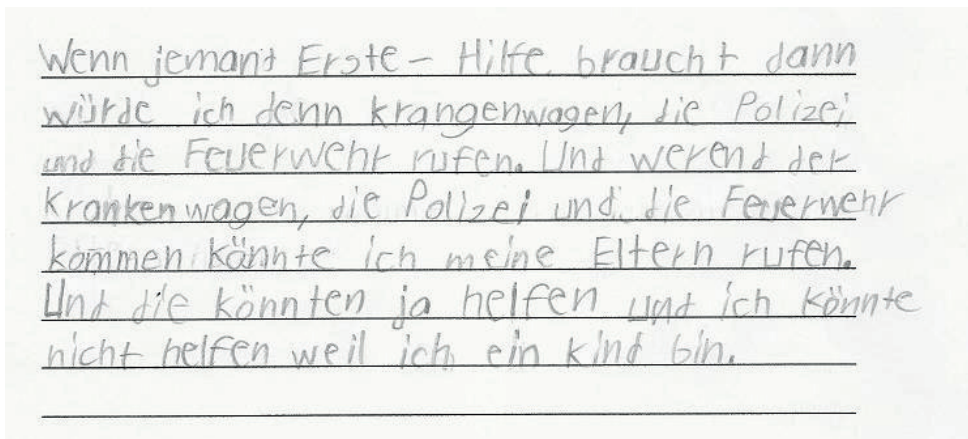 Wenn jemant Erste- Hilfe braucht dann
würde ich denn krangenwagen, die Polizei
und die Feuerwehr rufen. Und werend der
Krankenwagen, die Polizei und die Feuerwehr
kommen könnte ich meine Eltern rufen.
Und die könnten ja helfen und ich könnte
nicht helfen weil ich ein kind bin.